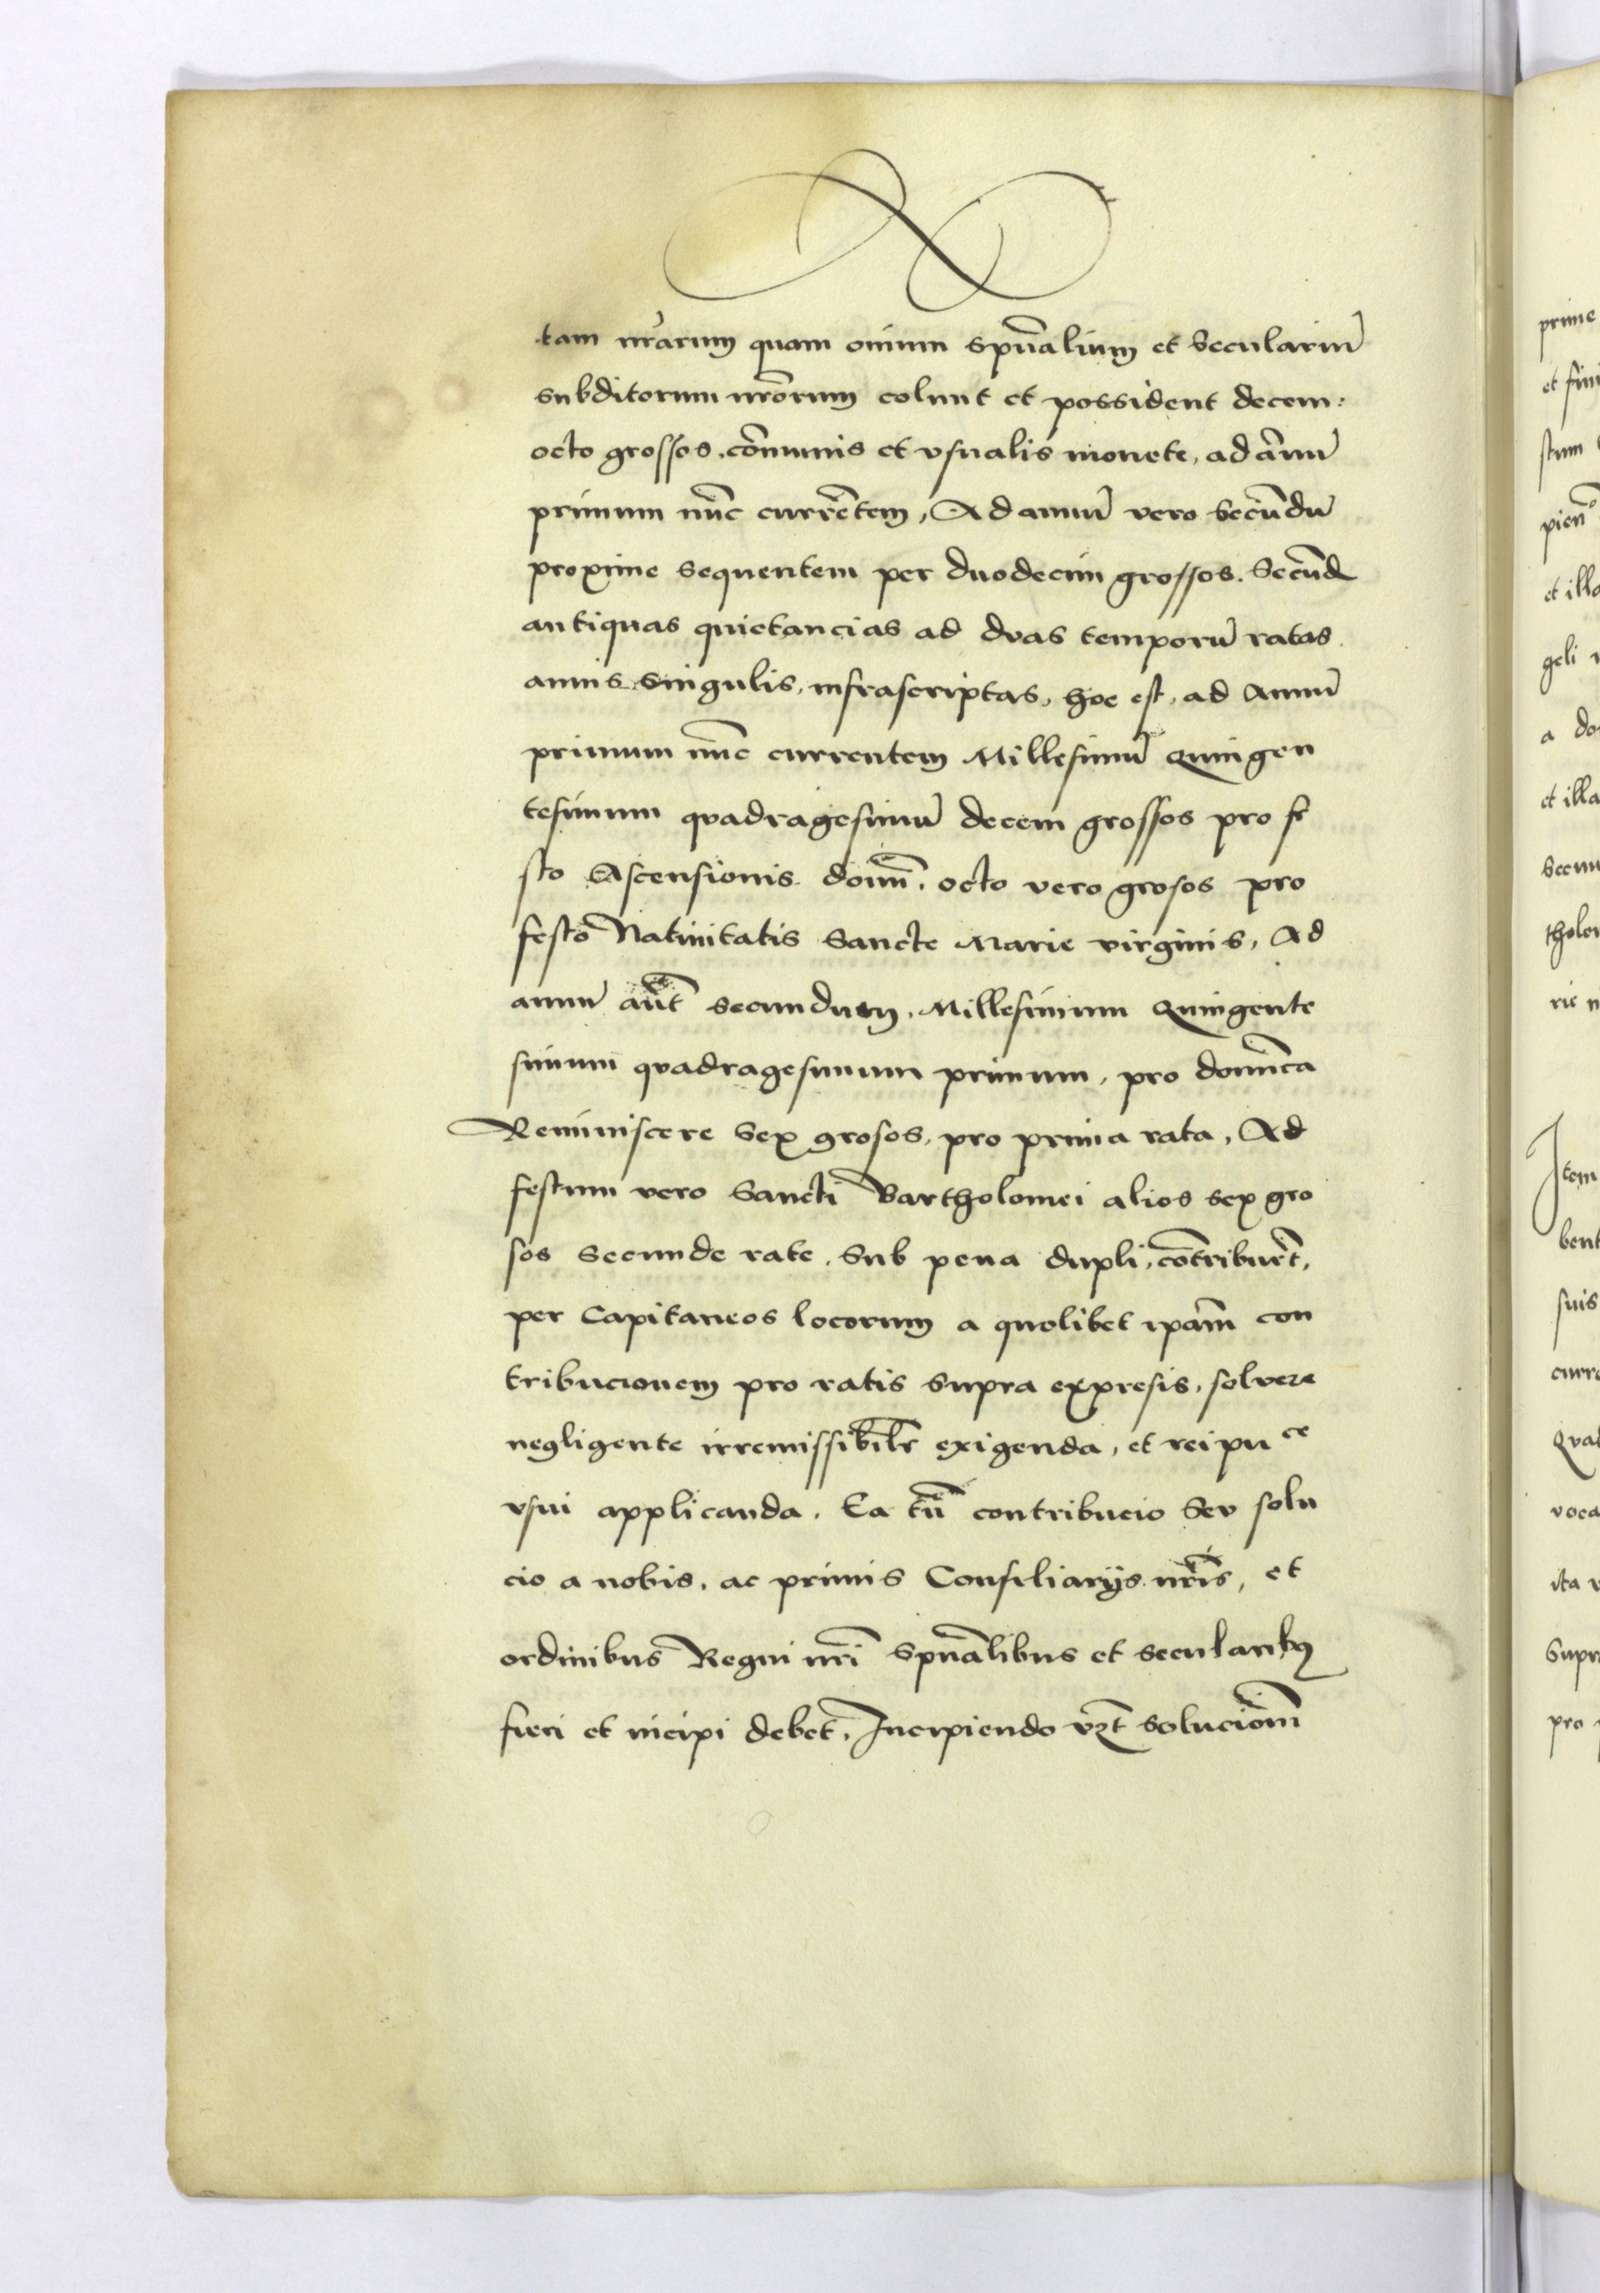 tam nr̃arum quam om̄ium spũalium et seculariũ
subditorum nr̃orum colunt et possident decem:
octo grossos, cõmunis et vsualis monete, ad ãnnũ
primum nũc currẽtem, Ad annũ vero secũdũ
proxime sequentem per duodecim grossos. Secũd
antiquas quietancias ad duas temporũ ratas
annis singulis, infrascriptas, hoc est, ad Annũ
primum nũc currentem Millesimũ Quingen
tesimum quadragesimũ decem grossos pro fe
sto Ascensionis domĩ. octo vero grosos pro
festo Natiuitatis Sancte Marie virginis, Ad
annũ aũt secundum, Millesimum Quingente
simum quadragesimum primum, pro domĩca
Reminiscere Sex grosos, pro prima rata, Ad
festum vero Sancti Bartholomei alios sex gro
sos Secunde rate. Sub pena dupli, cõtribuẽt,
per Capitaneos locorum a quolibet ip̃am con
tribucionem pro ratis supra expresis, solvere
negligente irremissibil̃r exigenda, et reipuce
vsui applicanda. Ea tñ contribucio Seu solu
cio a nobis, ac primis Consiliarijs nr̃is, et
ordinibus Regni nr̃i Spũalibus et secularibȝ
fieri et incipi debet, Incipiendo vzt solucionẽ
prime
et fini
stum
pien
et illa
geli
a do
et illa
secun
tholo
rie
Item
bent
suis
curre
Qua
voca
ita
Supr
pro